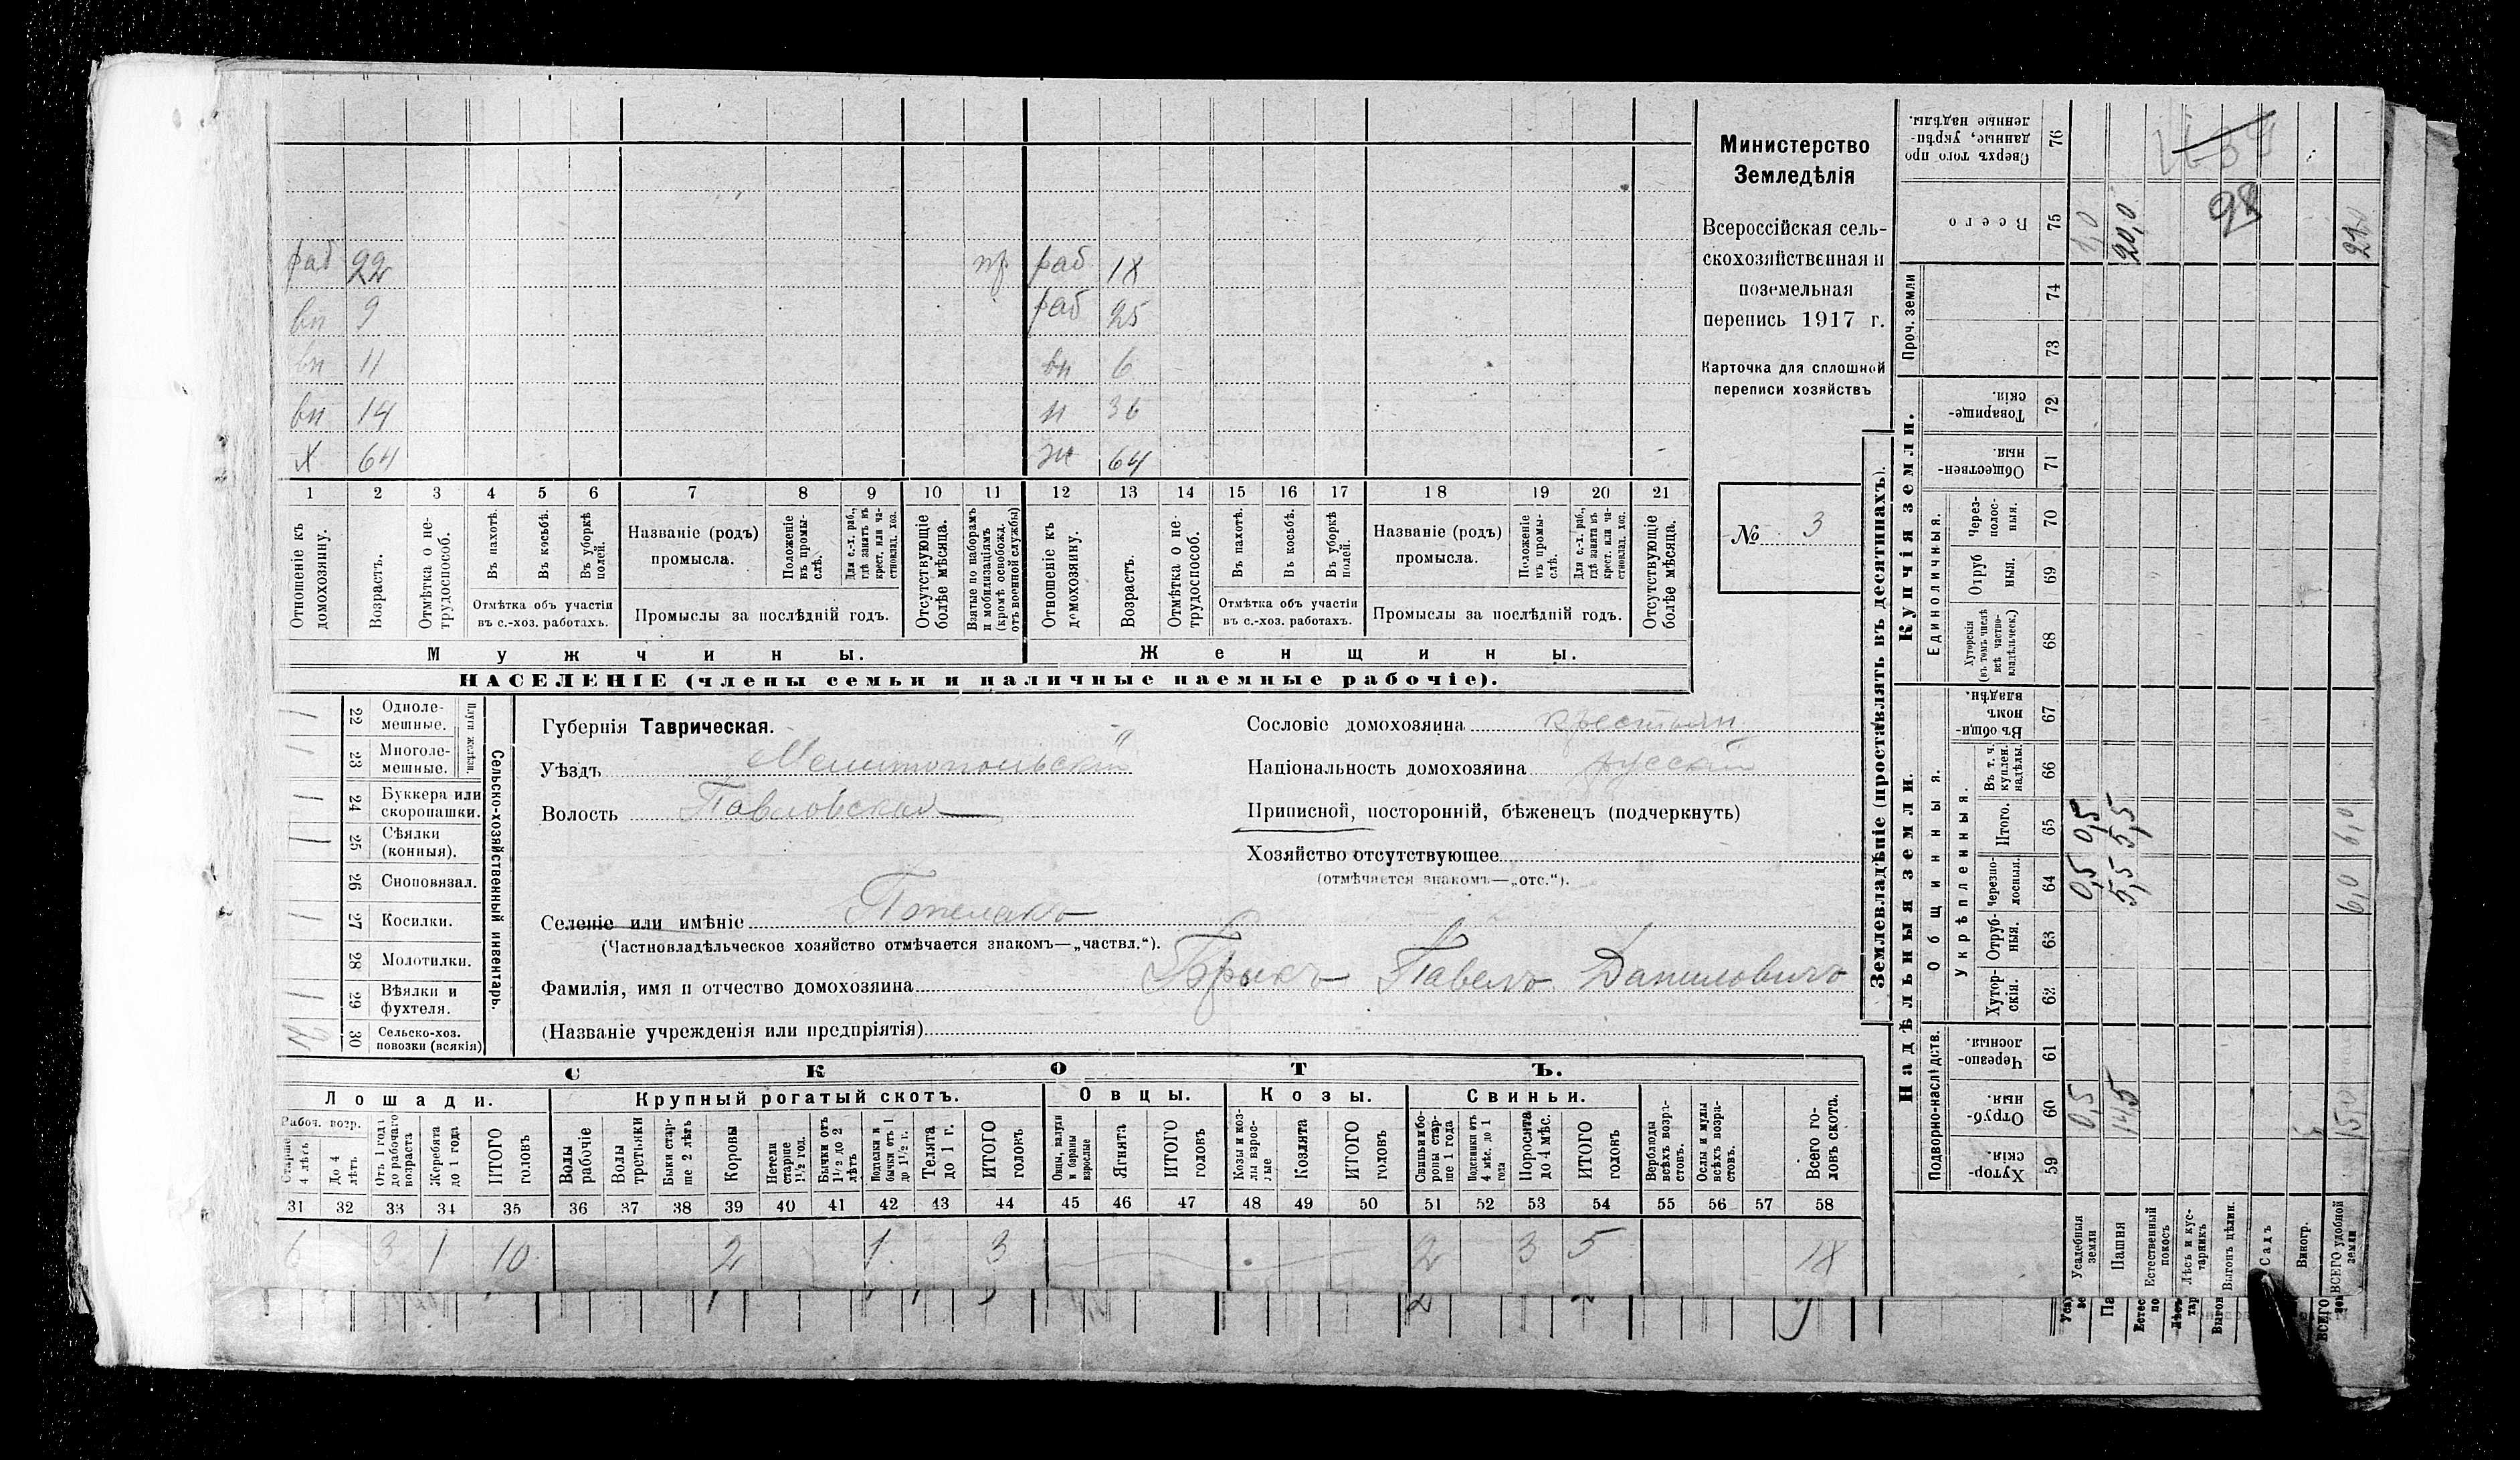 раб 22 пр раб 18
вн 9 раб 25
вн 11 вн 6
вн 14 н 36
х 64 ж 64
1 2 3 4 5 6 7 8 9 10 11 12 13 14 15 16 17 18 19 20 21
Отношеніе къ домохозяину.
Возрастъ.
Отмѣтка о не-трудоспособ.
Въ пахотѣ.
Въ косьбѣ.
Въ уборкѣ полей.
Отмѣтка объ участіи
въ с.-хоз. работахъ.
Названіе (родъ)
промысла.
Положеніе въ промы-слѣ.
Для с.-х. раб., гдѣ занятъ въ крест. или ча-стновлад. хоз.
Промыслы за послѣдній годъ.
Отсутствующіе болѣе мѣсяца.
Взятые по наборамъ и мобилизаціямъ (кромѣ освобожд. отъ военной службы)
Отношеніе къ домохозяину.
Возрастъ.
Отмѣтка о не-трудоспособ.
Въ пахотѣ.
Въ косьбѣ.
Въ уборкѣ полей.
Отмѣтка объ участіи
въ с.-хоз. работахъ.
Названіе (родъ)
промысла.
Положеніе въ промы-слѣ.
Для с.-х. раб., гдѣ занята въ крест. или ча-стновлад. хоз.
Промыслы за послѣдній годъ.
Отсутствующіе болѣе мѣсяца.
Мужчины.
Женщины.
НАСЕЛЕНІЕ (члены семьи и наличные наемные рабочіе).
Министерство
Земледѣлія
Всероссійская сель-
скохозяйственная и
поземельная
перепись 1917 г.
Карточка для сплошной
переписи хозяйствъ
№ 3
Сельско-хозяйственный инвентарь.
Плуги желѣзн.
1 22 Однолемешные.
1 23 Многолемешные.
1 24 Буккера или скоропашки.
1 25 Сѣялки (конныя).
26 Сноповязал.
1 27 Косилки.
28 Молотилки.
1 29 Вѣялки и фухтеля.
30 Сельско-хоз. повозки (всякія)
Губернія Таврическая.
Уѣздъ Мелитопольскій
Волость Павловская
Селеніе или имѣніе
(Частновладѣльческое хозяйство отмѣчается знакомъ—„частвл.“).
Фамилія, имя и отчество домохозяина Брикъ Павелъ Даниловичъ
(Названіе учрежденія или предпріятія)
Сословіе домохозяина крестьян
Національность домохозяина русскій
Приписной, посторонній, бѣженецъ (подчеркнуть)
Хозяйство отсутствующее
(отмѣчается знакомъ—„отс.“).
СКОТЪ.
Лошади.
Рабоч. возр.
Старше 4 лѣтъ
До 4 лѣтъ
Отъ 1 года до рабочаго возраста
Жеребята до 1 года
ИТОГО головъ
Крупный рогатый скотъ.
Волы рабочіе
Волы третьяки
Быки стар-ше 2 лѣтъ
Коровы
Нетели старше 1½ год.
Бычки отъ 1½ до 2 лѣтъ
Подтелки и бычки отъ 1 до 1½ г.
Телята до 1 г.
ИТОГО головъ
Овцы.
Овцы, валухи и бараны взрослые
Ягнята
ИТОГО головъ
Козы.
Козы и коз-лы взрос-лые
Козлята
ИТОГО головъ
Свиньи.
Свиньи и бо-ровы стар-ше 1 года
Подсвинки отъ 4 мѣс. до 1 года
Поросята до 4 мѣс.
ИТОГО головъ
Верблюды всѣхъ возра-стовъ.
Ослы и мулы всѣхъ возра-стовъ.
Всего го-ловъ скота.
31 32 33 34 35 36 37 38 39 40 41 42 43 44 45 46 47 48 49 50 51 52 53 54 55 56 57 58
6 3 1 10 2 1 3 2 3 5 18
Землевладѣніе (проставлять въ десятинахъ).
Надѣльныя земли.
Подворно-наслѣдств.
Хутор-скія. 59
Отруб-ныя. 60
Черезпо-лосныя. 61
Общинныя.
Укрѣпленныя.
Хутор-скія. 62
Отруб-ныя. 63
Черезпо-лосныя. 64
Итого. 65
Въ т. ч. куплен. надѣлы. 66
Въ общи-номъ владѣн. 67
Купчія земли.
Единоличныя.
Хуторскія (въ томъ числѣ всѣ частно-владѣльческ.) 68
Отруб ныя. 69
Через-полос-ныя. 70
Обществен-ныя. 71
Товарище-скія. 72
Проч. земли
73 74
Всего 75
Сверхъ того про данные, укрѣп-ленные надѣлы. 76
Усадебныя земли 0,5 0,5 0,5 1,0
Пашня 14,5 5,5 5,5 20,0
Естественный покосъ
Лѣсъ и кус-тарникъ
Выгонъ цѣлин.
Садъ
Виногр.
ВСЕГО удобной земли 15,0 6,0 6,0 21,0
98